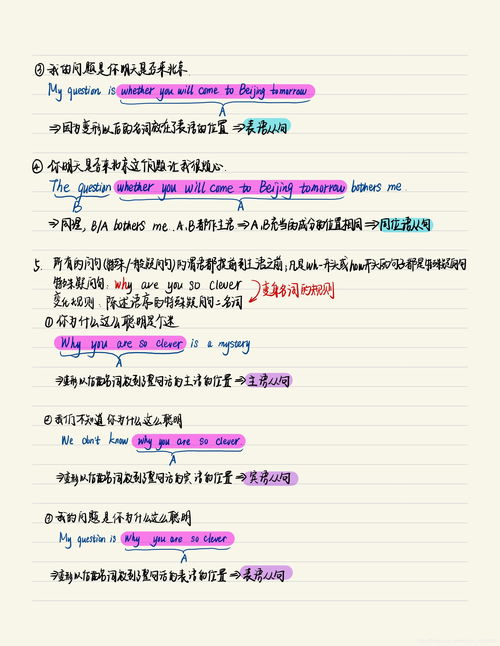 ③ 我的问题是你明天是否来北京.
My question is whether you will come to Beijing tomorrow
A
⇒因为变形以后的名词放在了表语的位置 ⇒表语从句
④ 你明天是否来北京这个问题让我很烦心.
The question whether you will come to Beijing tomorrow bothers me.
B A
⇒同理, B/A bothers me. A.B都作主语⇒A.B充当的成分的位置相同⇒同位语从句
5. 所有的问句(特殊/一般疑问句)的谓语都提前到主语之前,凡是wh-开头或how开头的句子都是特殊疑问句
特殊疑问句: why are you so clever
变名词的规则
变化规则: 陈述语序的特殊疑问句=名词
①你为什么这么聪明是个迷
Why you are so clever is a mystery
⇒变形以后的名词放到了整句话的主语的位置⇒主语从句
②我们不知道你为什么这么聪明
We don't know why you are so clever
A
⇒变形以后的名词放到了整句话的宾语的位置⇒宾语从句
③我的问题是你为什么这么聪明
My question is why you are so clever
A
⇒变形以后的名词放到了整句话的表语的位置⇒表语从句